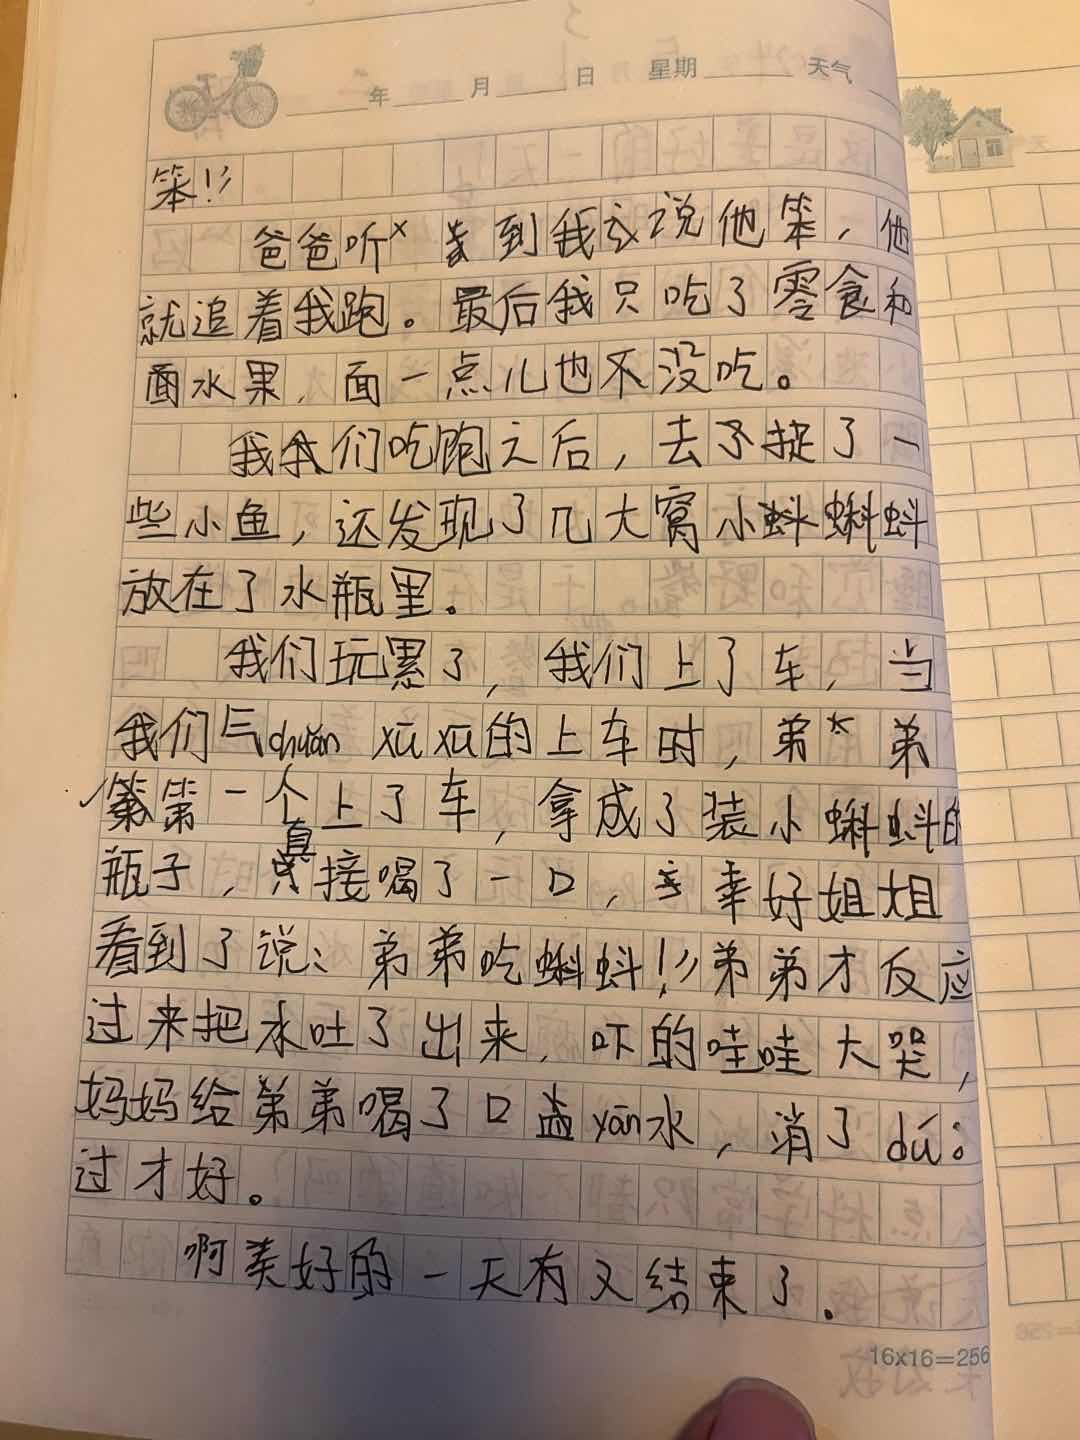 年 月 日 星期 天气
笨!”
爸爸听到我说他笨，他
就追着我跑。最后我只吃了零食和
水果，面一点儿也没吃。
我们吃饱之后，去捉了一
些小鱼，还发现了几大窝小蝌蚪
放在了水瓶里。
我们玩累了，我们上了车，当
我们气chuǎn xū xū的上车时，弟弟
第一个上了车，拿成了装小蝌蚪的
瓶子，直接喝了一口，幸好姐姐
看到了说：弟弟吃蝌蚪!”弟弟才反应
过来把水吐了出来，吓的哇哇大哭，
妈妈给弟弟喝了口盐yán水，消了dú
过才好。
啊美好的一天有又结束了.
16x16=256